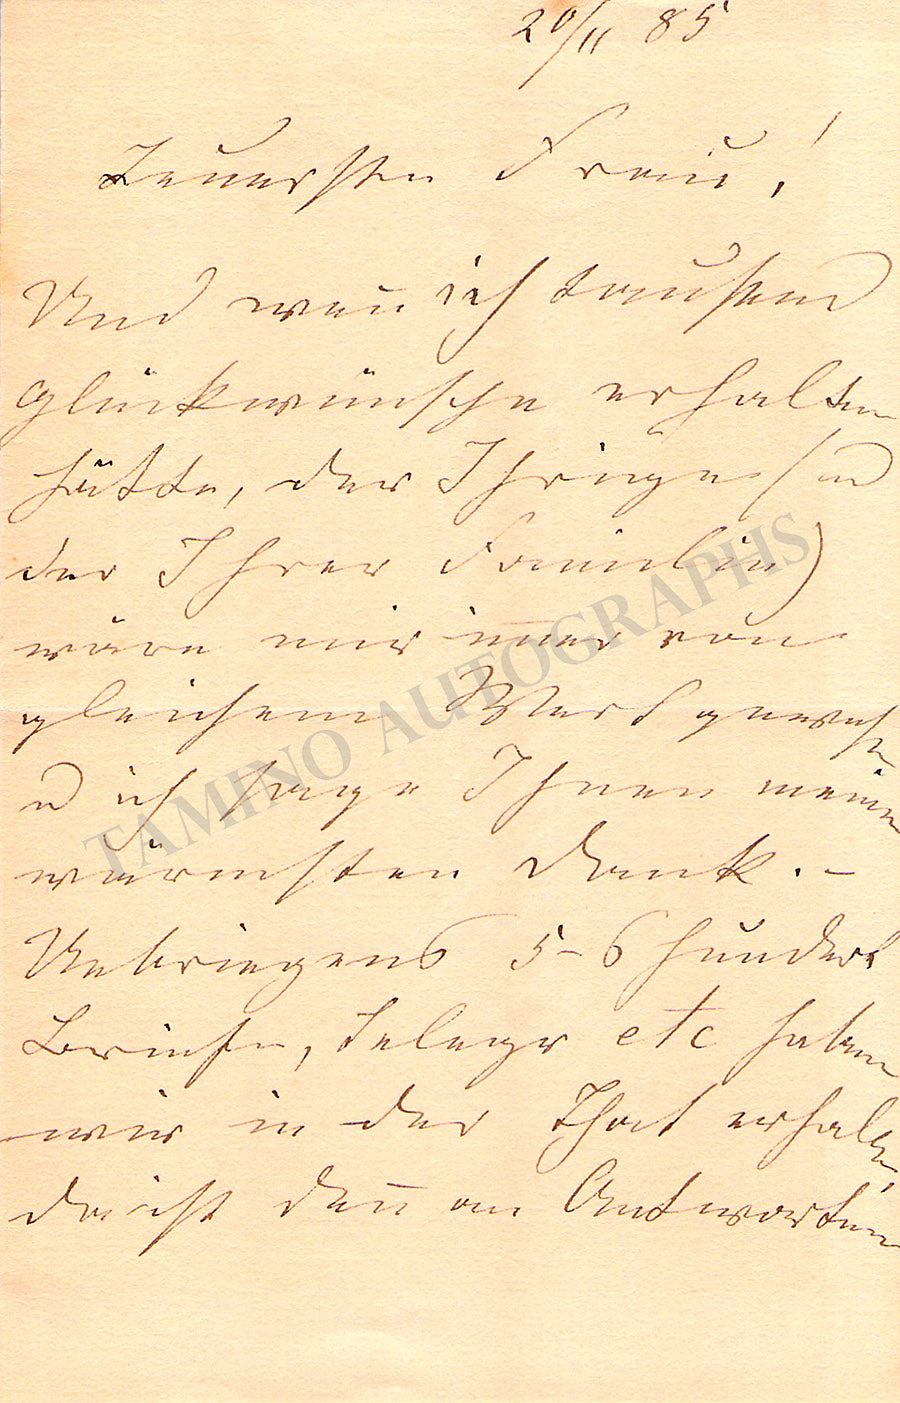 20/11 85
Teuersten Frau!
Und wen̄ ich tausend
Glückwünsche erhalten
hätte, der Ihrige (und
der Ihrer Familie)
wäre mir im̄er von
gleichem Wert gewesen
u ich sage Ihnen meinen
wärmsten Dank. –
Uebriegens 5–6 hundert
Briefe, Telegr etc haben
wir in der That erhalten,
da ist den̄ an Antworten
TAMINO AUTOGRAPHS